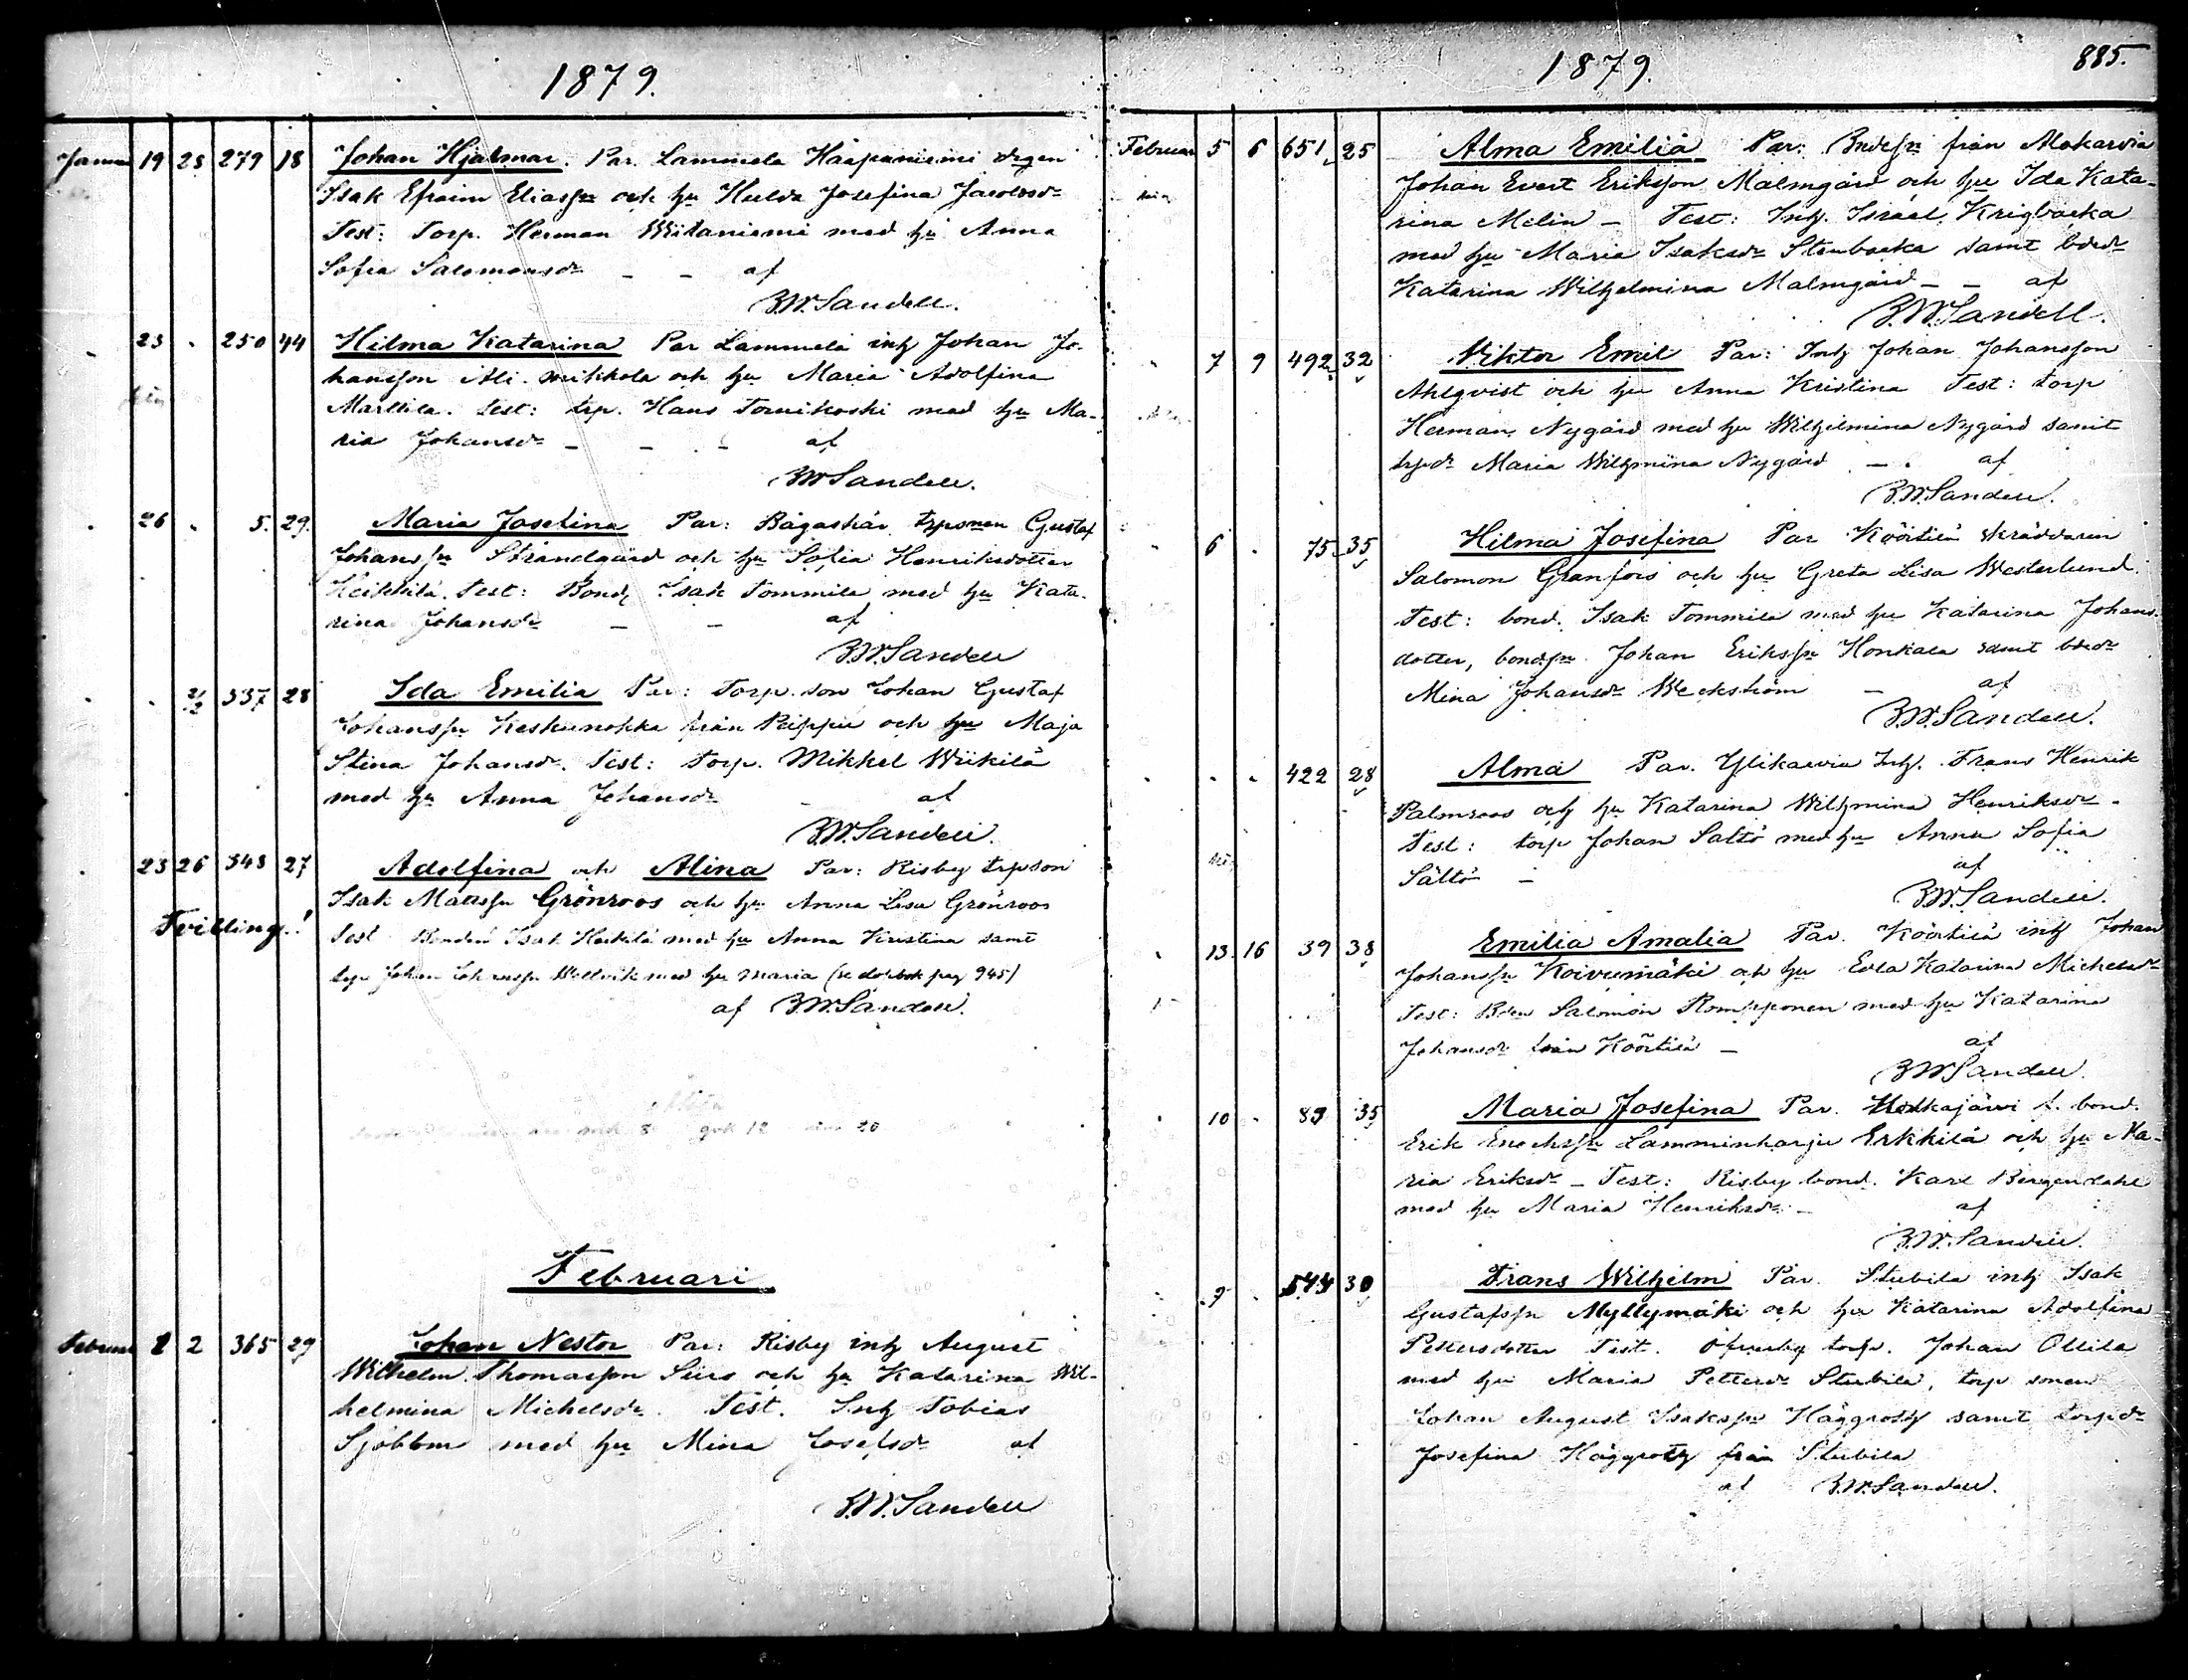 1879.
Janu 19 25 279 18 Johan Hjalmar. Par. Lammela Haapaniemi drgen
Isak Efraim Eliassn och hu Hulda Josefina Jacobsdr
Test: Torp. Herman Wiitaniemi med hu Anna
Sofia Salomonsdr – – af
B.W.Sandell.
23 " 250 44 Hilma Katarina Par Lammela inh Johan Jo-
hansson Ali-mikkola och hu Maria Adolfina
Marttila. test: trp. Hans Tornikoski med hu Ma-
ria Johansdr – – – af
BWSandell.
26 " 5. 29. Maria Josefina Par: Bågaskär trpsonen Gustaf
Johanssn Strandgård och hu Sofia Henriksdotter
Heikkilä. test: Bond. Isak Tommila med hu Kata-
rina Johansdr – – af
B.W.Sandell
" 2/2 337 28 Ida Emilia Par: Torp. son Johan Gustaf
Johanssn Keskinokka från Peippu och hu Maja
Stina Johansdr. Test: torp. Mikkel Wiikilä
med hu Anna Johansdr – af
B.W.Sandell.
23 26 343 27 Adolfina och Alina Par: Risby trpson
Isak Mattssn Grönroos och hu Anna Lisa Grönroos
Tvilling.!
test Bonden Isak Heikkilä med hu Anna Kristina samt
trp Johan Johanssn Wellvik med hu Maria (se dopbok pag 945)
af B.W.Sandell.
Februari
Februa 1 2 365 29 Johan Nestor Par: Risby inh August
Wilhelm Thomasson Siirs och hu Katarina Wil-
helmina Michelsdr. Test. Inh Tobias
Sjöblom med hu Mina Josefsdr af
B.W.Sandell
1879. 885.
Februar 5 6 651 25 Alma Emilia Par: Bndesn från Makarvia
Johan Evert Eriksson Malmgård och hu Ida Kata-
rina Melin – Test: Inh. Israel Krigbacka
med hu Maria Isaksdr Stenbacka samt bdr
Katarina Wilhelmina Malmgård – – af
B.W.Sandell.
" 7 9 492 32 Viktor Emil Par: Inh Johan Johansson
Ahlqvist och hu Anna Kristina Test: torp
Herman Nygård med hu Wilhelmina Nygård samt
trpdr Maria Wilhmina Nygård – af
B.W.Sandell.
" 6 " 75 35 Hilma Josefina Par Köörtilä skräddaren
Salomon Granfors och hu Greta Lisa Westerlund.
Test: bond. Isak Tommila med hu Katarina Johans-
dotter, bondsn. Johan Erikssn Honkala samt bdr
Mina Johansdr Weckström – af
B.W.Sandell.
" " " 422 28 Alma Par. Ylikarvia Inh. Frans Henrik
Palmroos och hu Katarina Wilhmina Henriksdr –
Test: torp Johan Saltö med hu Anna Sofia
Sältö – af
B.W.Sandell.
" 13 16 39 38 Emilia Amalia Par. Köörtilä inh Johan
Johanssn Koivumäki och hu Eva Katarina Michelsdr
Test: Bden Salomon Rompponen med hu Katarina
Johansdr från Köörtilä – af
B.W.Sandell.
" 10 " 89 35 Maria Josefina Par. Honkajärvi f. bond.
Erik Enochssn Lamminharju Erkkilä och hu Ma-
ria Eriksdr – Test: Risby bond. Karl Bergendahl
med hu Maria Henriksdr – af
B.W.Sandell.
9 " 544 30 Frans Wilhelm Par. Stubila inh Isak
Gustafssn Myllymäki och hu Katarina Adolfina
Pettersdotter Test. Öfverby torp. Johan Ollila
med hu Maria Pettersdr Stubila, torp sonen
Johan August Isakssn Häggroth samt torpdr
Josefina Häggroth från Stubila
af B.W.Sandell.